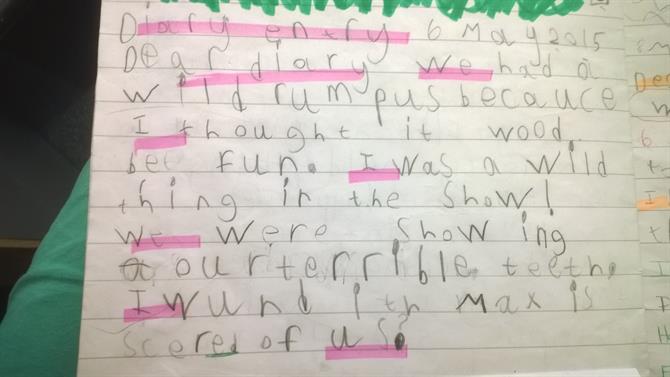 Diary entry 6 May 2015
Dear diary we had a
wild rumpus becauce
I thought it wood
bee fun. I was a wild
thing in the show!
We were show ing
our terrible teeth.
I wund ith max is
scered of us?